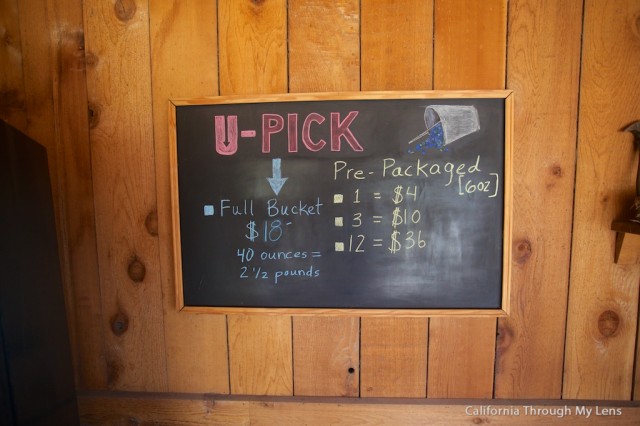 U-PICK
Full Bucket
$18-
40 ounces =
2 1/2 pounds
Pre-Packaged
[6oz]
1 = $4
3 = $10
12 = $36
California Through My Lens